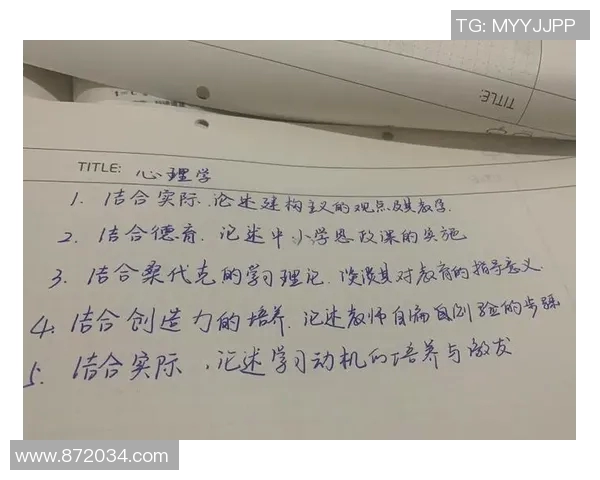 TG: MYYJJPP
TITLE:
TITLE: 心理学
1. 结合实际.论述建构主义的观点及其教学.
2. 结合德育.论述中小学思政课的实施
3. 结合桑代克的学习理论.谈谈其对教育的指导意义
4. 结合创造力的培养.论述教师自编自例验的步骤
5. 结合实际,论述学习动机的培养与激发
www.872034.com